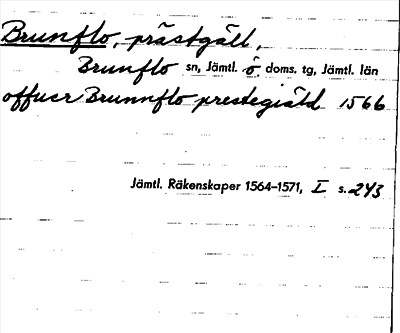 Brunflo, prästgäll,
Brunflo sn, Jämtl. ö. doms. tg, Jämtl. län
offuer Brunnflo prestegiäld 1566
Jämtl. Räkenskaper 1564–1571, I s. 243